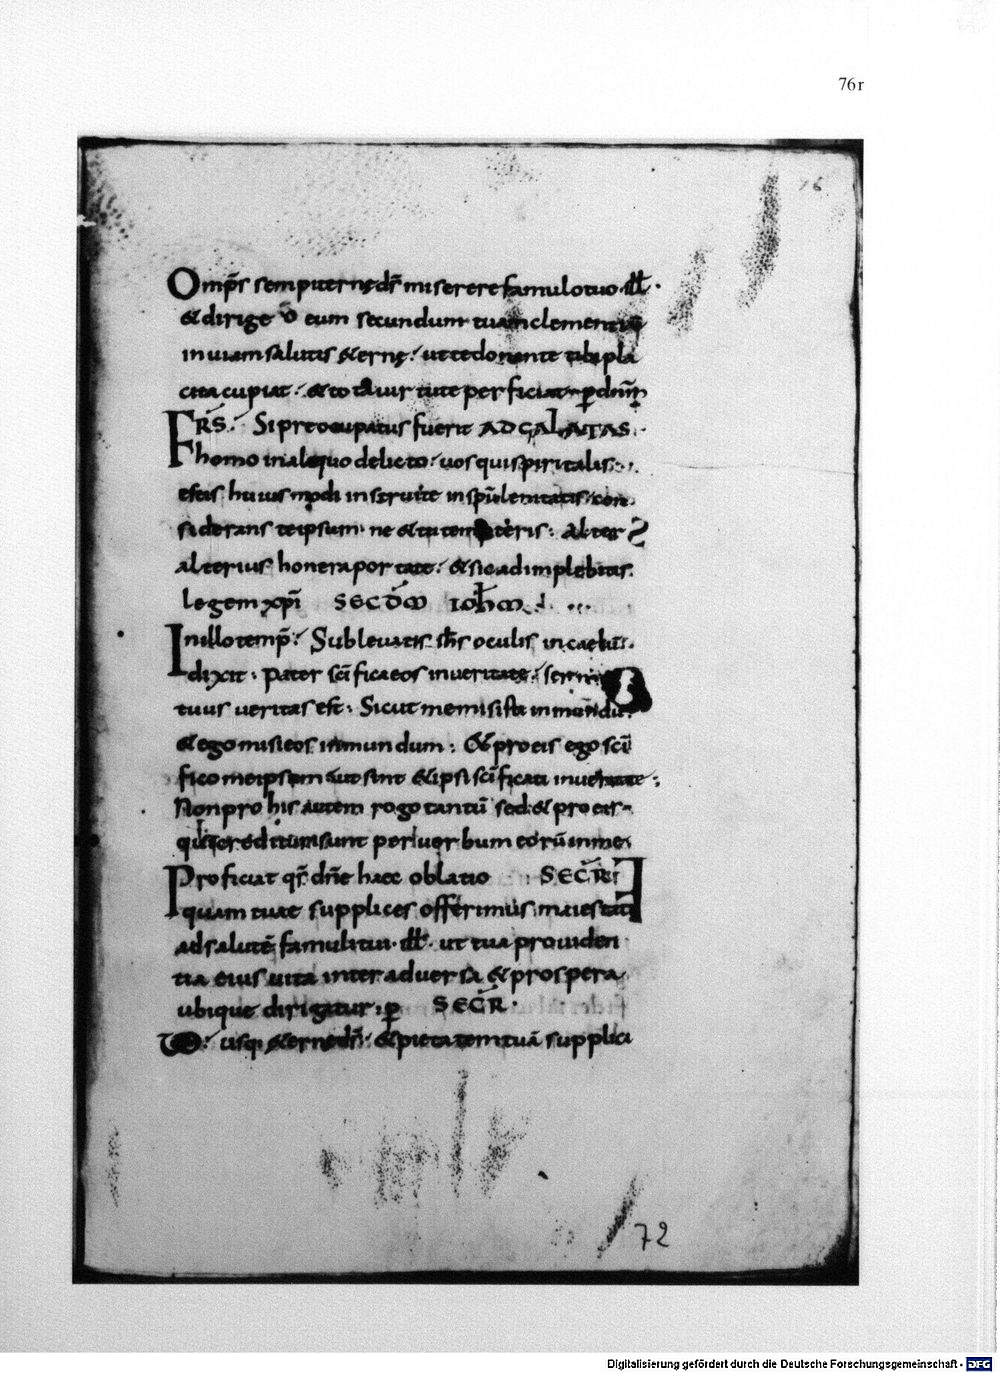 76r
76
Omp̄s sempiternę d̄s miserere famulo tuo · ill ·
& dirige eum secundum tuam clementiā
in uiam salutis &ernę · ut te donante tibi pla
cita cupiat · & tota uirtute perficiat · ꝑ dnm̄
FRS̄ · Si preocupatus fuerit AD GALATAS ·
homo in alequo delicto · uos qui spiritalis
estis huius modi instruite in sp̄u lenitatis · con
siderans te ipsum · ne & tu tempteris · Alter
alterius honera portate · & sic adimplebitis
legem xp̄i SECD̄M IOH̄M
In illo temp̄ · Subleuatis ih̄s oculis in caelū ·
dixit · Pater sc̄ifica eos in ueritate · sermo
tuus ueritas est · Sicut me misisti in mundū ·
& ego misi eos in mundum · & pro eis ego sc̄i
fico me ipsum ut sint & ipsi sc̄ificati in ueritate ·
Non pro his autem rogo tantū sed & pro eis
qui credituri sunt per uerbum eorū in me
Proficiat qs̄ dn̄e haec oblatio SECR̄
quam tuae supplices offerimus maiestati
ad salutē famuli tui · ill · ut tua prouiden
tia eius uita inter aduersa & prospera
ubique dirigatur · ꝑ SECR̄ ·
UD · usq; &ernę d̄s · & pietatem tuā supplici
72
Digitalisierung gefördert durch die Deutsche Forschungsgemeinschaft - DFG